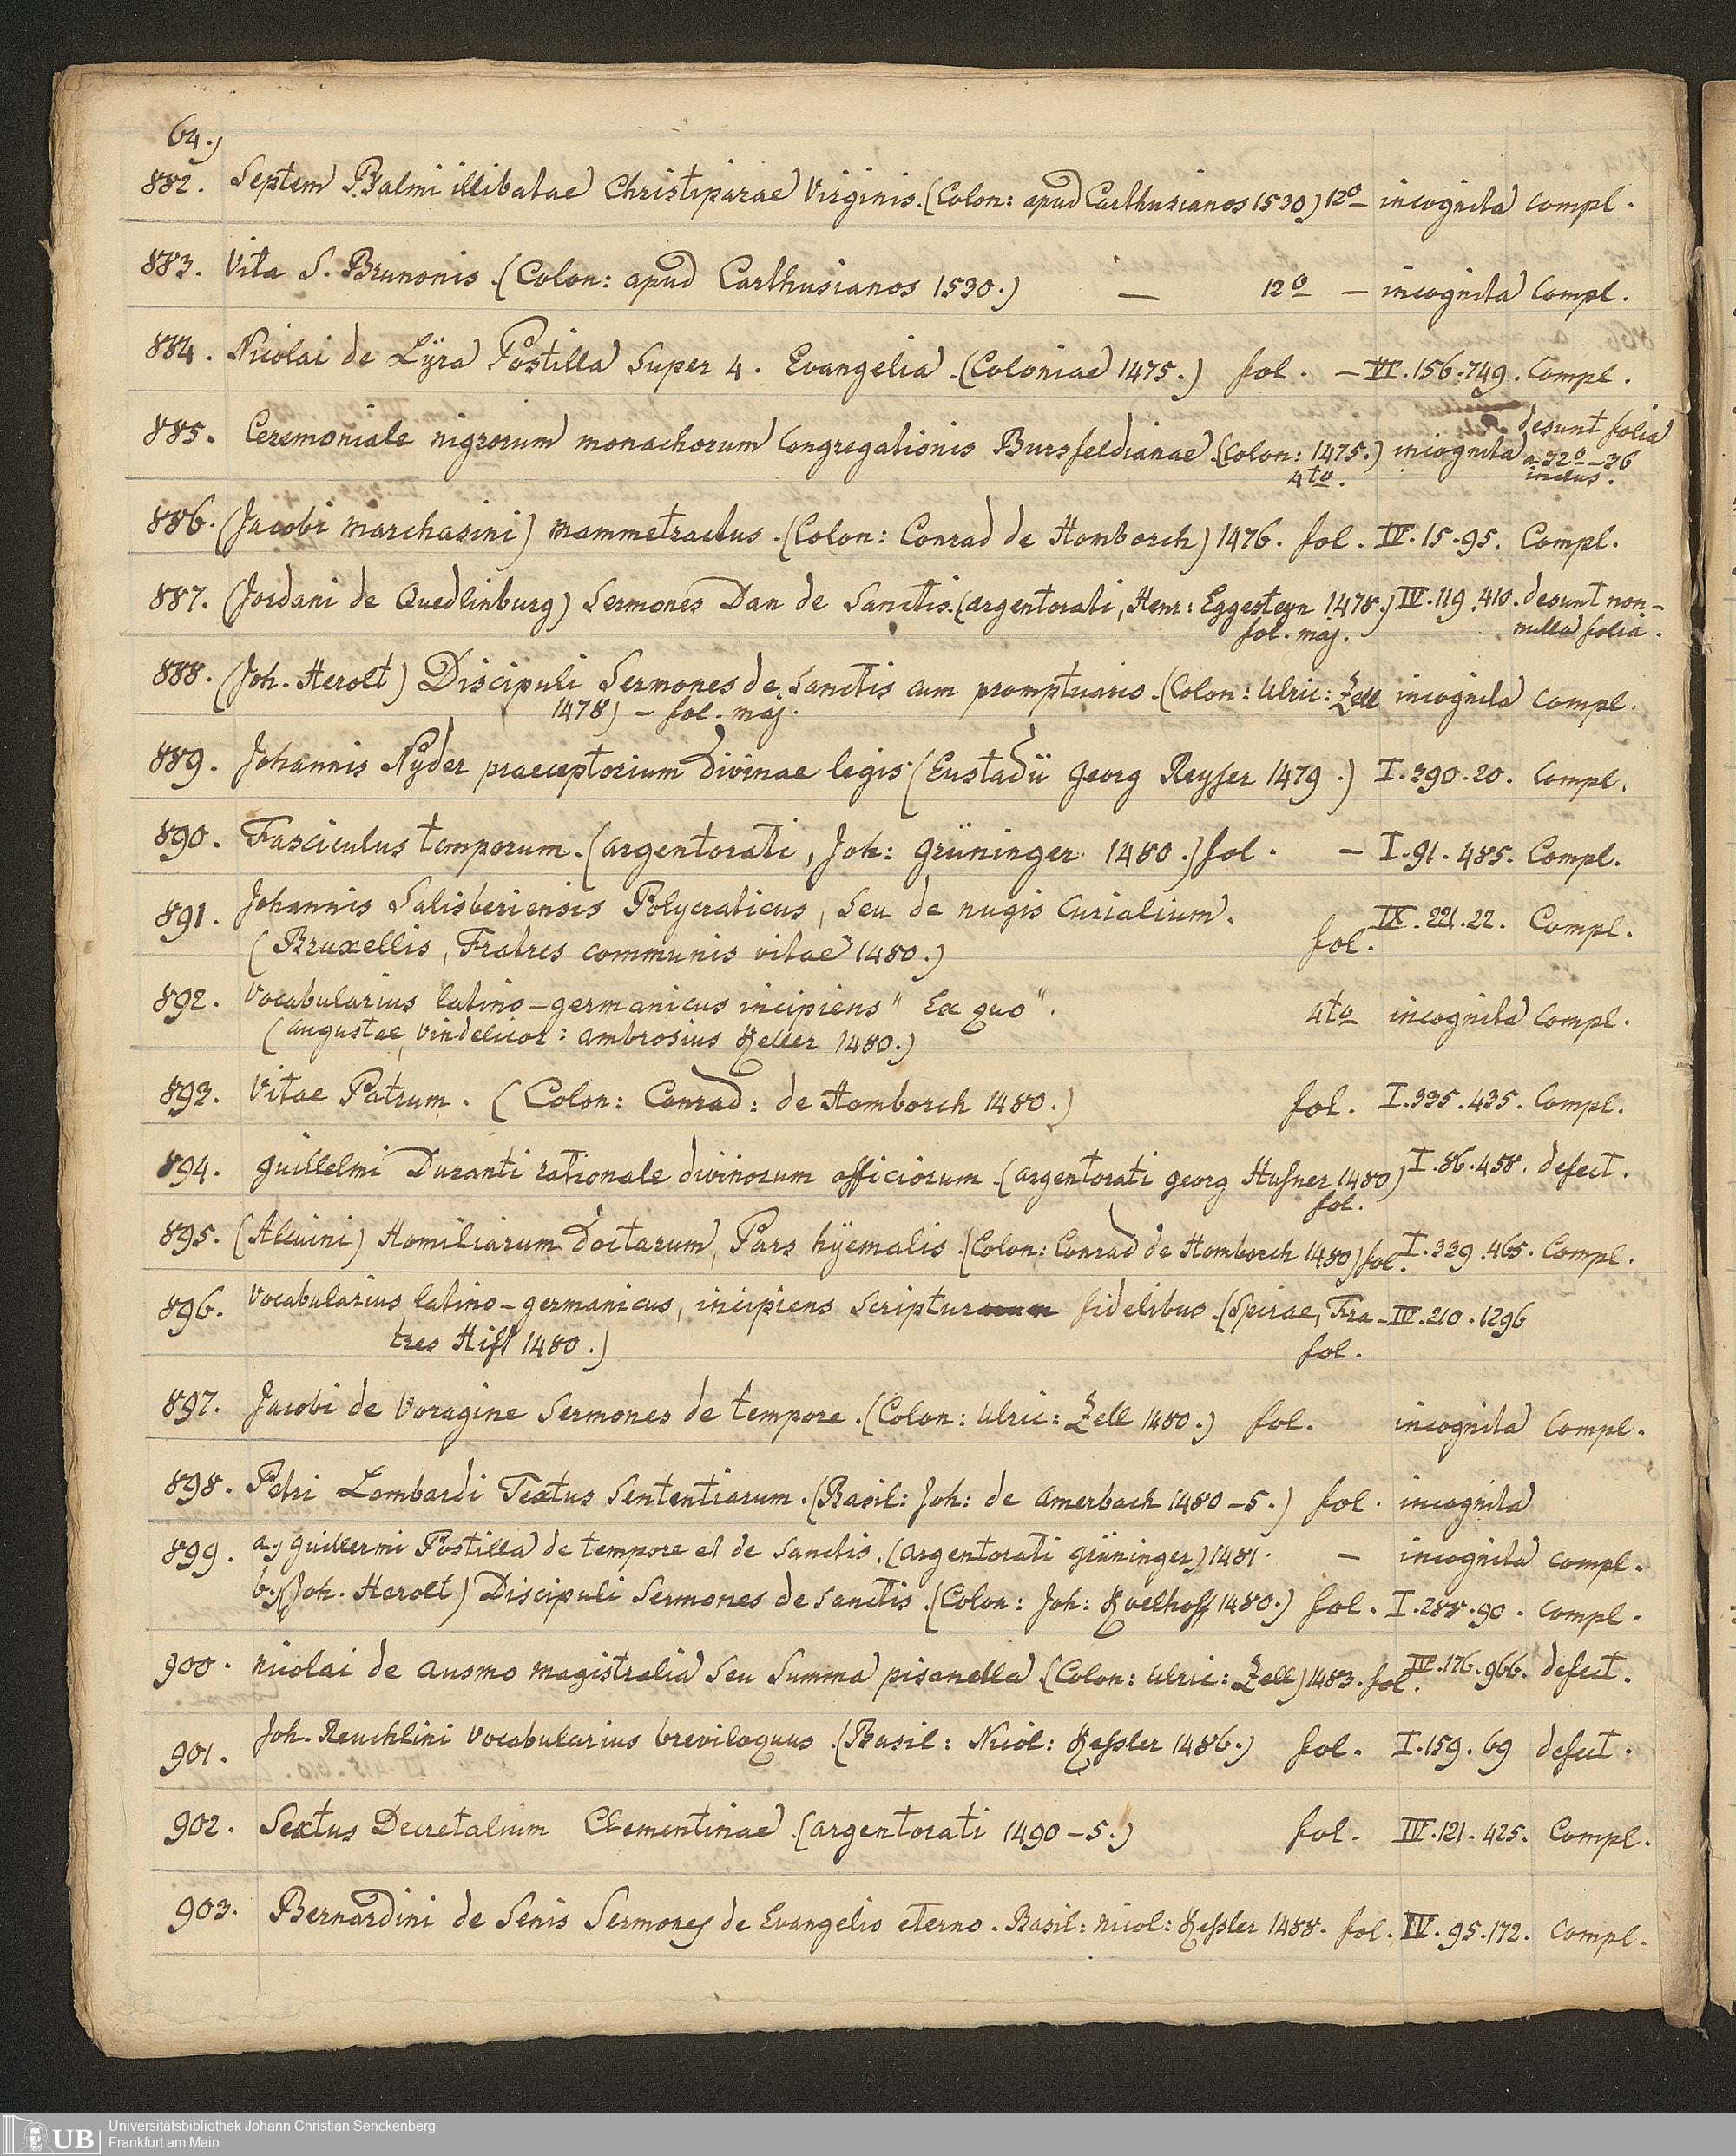 64.)
882. Septem Psalmi illibatae Christiparae Virginis. (Colon: apud Carthusianos 1530) 12º – incognita compl.
883. Vita S. Brunonis. (Colon: apud Carthusianos 1530.) — 12º – incognita Compl.
884. Nicolai de Lÿra Postilla super 4. Evangelia. (Coloniae 1475.) fol. – VI. 156. 749. Compl.
885. Ceremoniale nigrorum monachorum Congregationis Bursfeldianae (Colon: 1475.) incognita desunt folia
4to. a 32º–36
inclus.
886. (Jacobi Marchasini) Mammetractus. (Colon: Conrad de Homborch) 1476. fol. IV. 15. 95. Compl.
887. (Jordani de Quedlinburg) Sermones Dan de Sanctis. (Argentorati, Henr: Eggesteyn 1478.) IV. 119. 410. desunt non-
fol. maj. nulla folia.
888. (Joh. Herolt) Discipuli Sermones de Sanctis cum promptuario. (Colon: Ulric: Zell incognita Compl.
1478) – fol. maj.
889. Johannis Nyder praeceptorium divinae legis (Eustadii Georg Reyser 1479.) I. 290. 20. Compl.
890. Fasciculus temporum. (Argentorati, Joh: Grüninger 1480.) fol. – I. 91. 485. Compl.
891. Johannis Salisberiensis Polycraticus, seu de nugis Curialium.
(Bruxellis, Fratres communis vitae 1480.) fol. IX. 221. 22. Compl.
892. Vocabularius latino-germanicus incipiens "Ex quo". 4to incognita Compl.
(Augustae Vindelicor: Ambrosius Keller 1480.)
893. Vitae Patrum. (Colon: Conrad: de Homborch 1480.) fol. I. 335. 435. Compl.
894. Guillelmi Duranti rationale divinorum officiorum. (Argentorati Georg Husner 1480) I. 86. 458. defect.
fol.
895. (Alcuini) Homiliarum Doctarum, Pars hÿemalis. (Colon: Conrad de Homborch 1480) fol. I. 339. 465. Compl.
896. Vocabularius latino-germanicus, incipiens Scriptur fidelibus. (Spirae, Fra- IV. 210. 1296
tres Hist 1480.) fol.
897. Jacobi de Voragine Sermones de tempore. (Colon: Ulric: Zell 1480.) fol. incognita Compl.
898. Petri Lombardi Textus Sententiarum. (Basil: Joh: de Amerbach 1480–5.) fol. incognita
899. a.) Guillermi Postilla de tempore et de Sanctis. (Argentorati Grüninger) 1481. – incognita Compl.
b.) (Joh. Herolt) Discipuli Sermones de Sanctis. (Colon: Joh: Koelhoff 1480.) fol. I. 288. 90. Compl.
900. Nicolai de Ausmo Magistralia seu Summa pisanella. (Colon: Ulric: Zell) 1483. fol. IV. 176. 966. defect.
901. Joh. Reuchlini Vocabularius breviloquus. (Basil: Nicol: Kessler 1486.) fol. I. 159. 69 defect.
902. Sextus Decretalium Clementinae. (Argentorati 1490–5.) fol. IV. 121. 425. Compl.
903. Bernardini de Senis Sermones de Evangelio eterno. Basil: Nicol: Kessler 1488. fol. IV. 95. 172. Compl.
UB Universitätsbibliothek Johann Christian Senckenberg
Frankfurt am Main